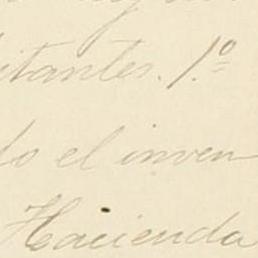 itantes. 1.º
do el inven
Hacienda